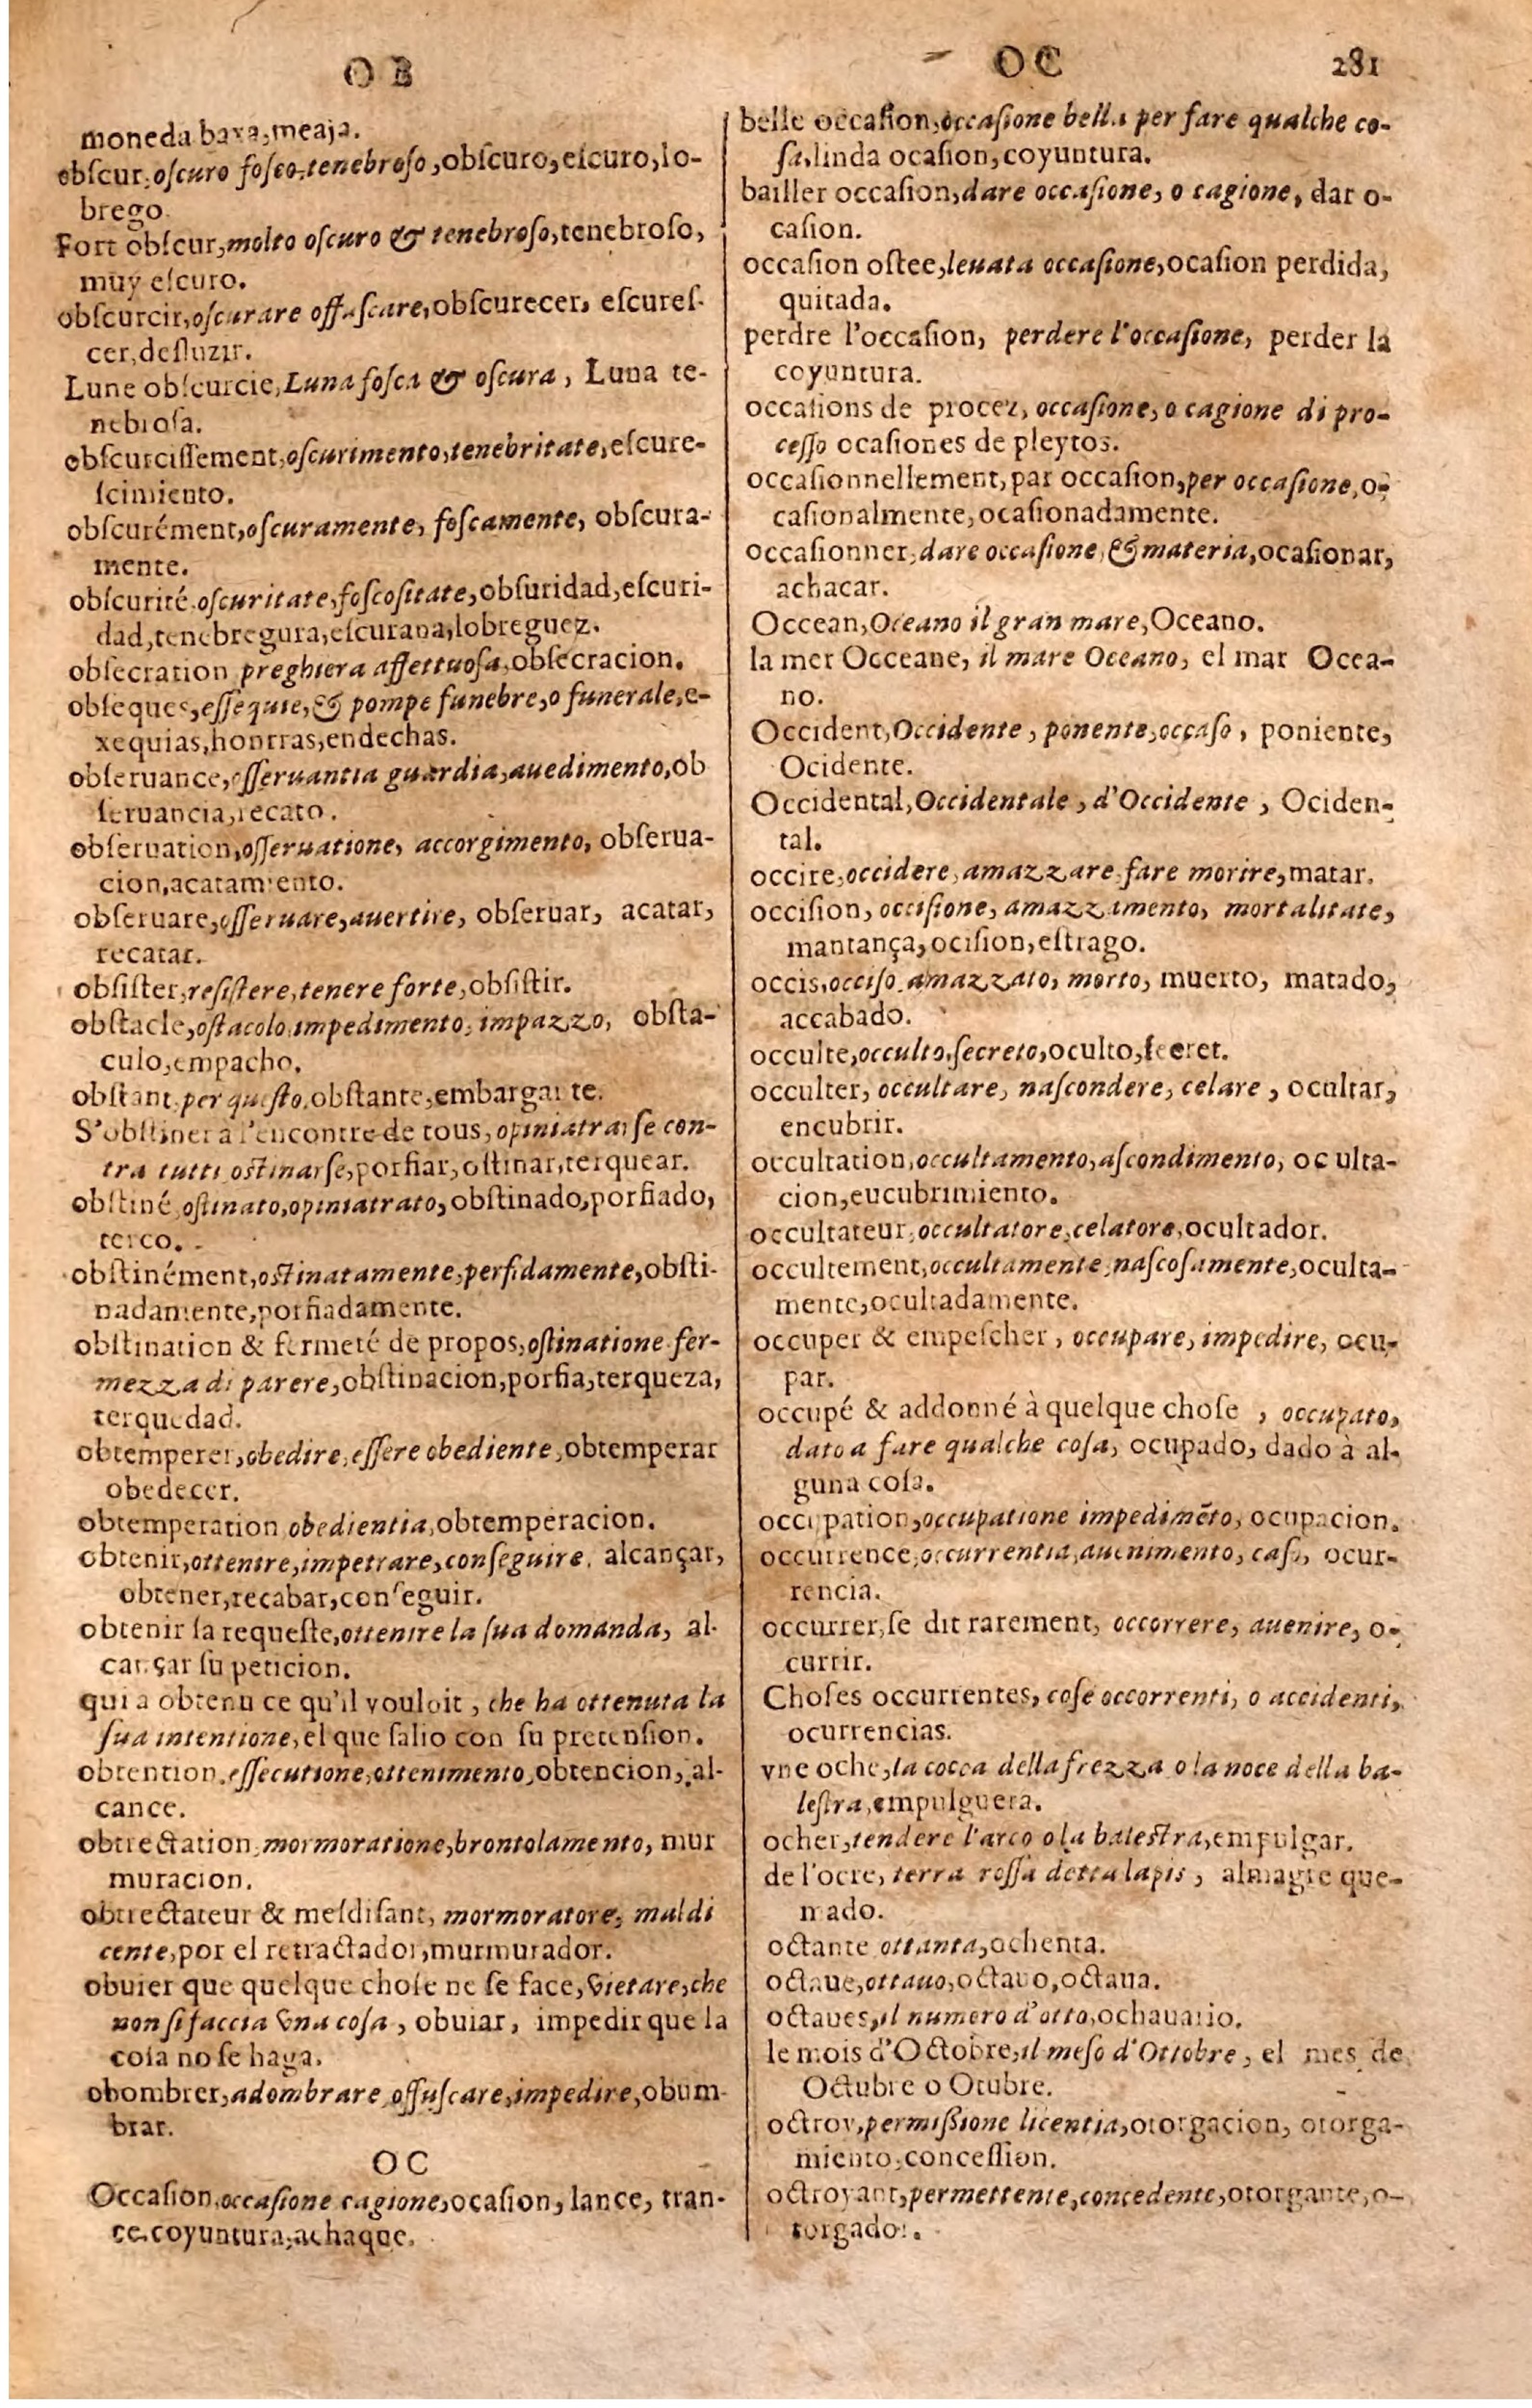 O B
moneda baxa, meaja.
obſcur, oſcuro foſco, tenebroſo, obſcuro, eſcuro, lo-
brego.
Fort obſcur, molto oſcuro & tenebroſo, tenebroſo,
muy eſcuro.
obſcurcir, oſcurare offuſcare, obſcurecer, eſcureſ-
cer, deſluzir.
Lune obſcurcie, Luna foſca & oſcura, Luna te-
nebroſa.
obſcurciſſement, oſcurimento, tenebritate, eſcure-
ſcimiento.
obſcurément, oſcuramente, foſcamente, obſcura-
mente.
obſcurité, oſcuritate, foſcoſitate, obſuridad, eſcuri-
dad, tenebregura, eſcurana, lobreguez.
obſecration preghiera affettuoſa, obſecracion.
obſeques, eſſequie, & pompe funebre, o funerale, e-
xequias, honrras, endechas.
obſeruance, oſſeruantia guardia, auedimento, ob
ſeruancia, recato.
obſeruation, oſſeruatione, accorgimento, obſerua-
cion, acatamiento.
obſeruare, oſſeruare, auertire, obſeruar, acatar,
recatar.
obſiſter, reſiſtere, tenere forte, obſiſtir.
obſtacle, oſtacolo, impedimento, impazzo, obſta-
culo, empacho.
obſtant, per queſto, obſtante, embargante.
S'obſtiner à l'encontre de tous, opiniatrarſe con-
tra tutti oſtinarſe, porfiar, oſtinar, terquear.
obſtiné, oſtinato, opiniatrato, obſtinado, porfiado,
terco.
obſtinément, oſtinatamente, perfidamente, obſti-
nadamente, porfiadamente.
obſtination & fermeté de propos, oſtinatione fer-
mezza di parere, obſtinacion, porfia, terqueza,
terquedad.
obtemperer, obedire, eſſere obediente, obtemperar
obedecer.
obtemperation obedientia, obtemperacion.
obtenir, ottenire, impetrare, conſeguire, alcançar,
obtener, recabar, conſeguir.
obtenir ſa requeſte, ottenire la ſua domanda, al-
cançar ſu peticion.
qui a obtenu ce qu'il vouloit, che ha ottenuta la
ſua intentione, el que ſalio con ſu pretenſion.
obtention, eſſecutione, ottenimento, obtencion, al-
cance.
obtrectation, mormoratione, brontolamento, mur
muracion.
obtrectateur & meſdiſant, mormoratore, maldi
cente, por el retractador, murmurador.
obuier que quelque choſe ne ſe face, vietare, che
non ſi faccia vna coſa, obuiar, impedir que la
coſa no ſe haga.
obombrer, adombrare, offuſcare, impedire, obum-
brar.
O C
Occaſion, occaſione cagione, ocaſion, lance, tran-
ce, coyuntura, achaque.
O C 281
belle occaſion, occaſione bella per fare qualche co-
ſa, linda ocaſion, coyuntura.
bailler occaſion, dare occaſione, o cagione, dar o-
caſion.
occaſion oſtee, leuata occaſione, ocaſion perdida,
quitada.
perdre l'occaſion, perdere l'occaſione, perder la
coyuntura.
occaſions de procez, occaſione, o cagione di pro-
ceſſo ocaſiones de pleytos.
occaſionnellement, par occaſion, per occaſione, o-
caſionalmente, ocaſionadamente.
occaſionner, dare occaſione, & materia, ocaſionar,
achacar.
Occean, Oceano il gran mare, Oceano.
la mer Occeane, il mare Oceano, el mar Ocea-
no.
Occident, Occidente, ponente, occaſo, poniente,
Ocidente.
Occidental, Occidentale, d'Occidente, Ociden-
tal.
occire, occidere, amazzare, fare morire, matar.
occiſion, occiſione, amazzamento, mortalitate,
mantança, ociſion, eſtrago.
occis, occiſo, amazzato, morto, muerto, matado,
accabado.
occulte, occulto, ſecreto, oculto, ſecret.
occulter, occultare, naſcondere, celare, ocultar,
encubrir.
occultation, occultamento, aſcondimento, oculta-
cion, eucubrimiento.
occultateur, occultatore, celatore, ocultador.
occultement, occultamente, naſcoſamente, oculta-
mente, ocultadamente.
occuper & empeſcher, occupare, impedire, ocu-
par.
occupé & addonné à quelque choſe, occupato,
dato a fare qualche coſa, ocupado, dado à al-
guna coſa.
occupation, occupatione impedimẽto, ocupacion.
occurrence, occurrentia, auenimento, caſo, ocur-
rencia.
occurrer, ſe dit rarement, occorrere, auenire, o-
currir.
Choſes occurrentes, coſe occorrenti, o accidenti,
ocurrencias.
vne oche, la cocca della frezza o la noce della ba-
leſtra, empulguera.
ocher, tendere l'arco o la baleſtra, empulgar.
de l'ocre, terra roſſa detta lapis, almagre que-
mado.
octante ottanta, ochenta.
octaue, ottauo, octauo, octaua.
octaues, il numero d'otto, ochauario.
le mois d'Octobre, il meſo d'Ottobre, el mes de
Octubre o Otubre.
octroy, permiſſione licentia, otorgacion, otorga-
miento, conceſſion.
octroyant, permettente, concedente, otorgante, o-
torgador.